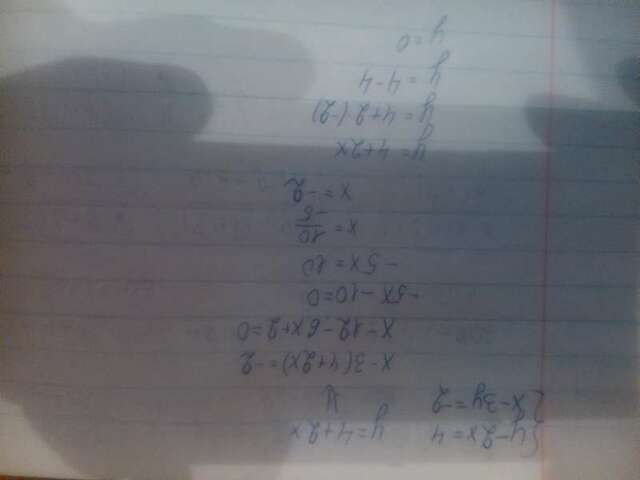 {y-2x=4 y=4+2x
{x-3y=-2 ⇓
x-3(4+2x)=-2
x-12-6x+2=0
-5x-10=0
-5x=10
x=10/-5
x=-2
y=4+2x
y=4+2(-2)
y=4-4
y=0